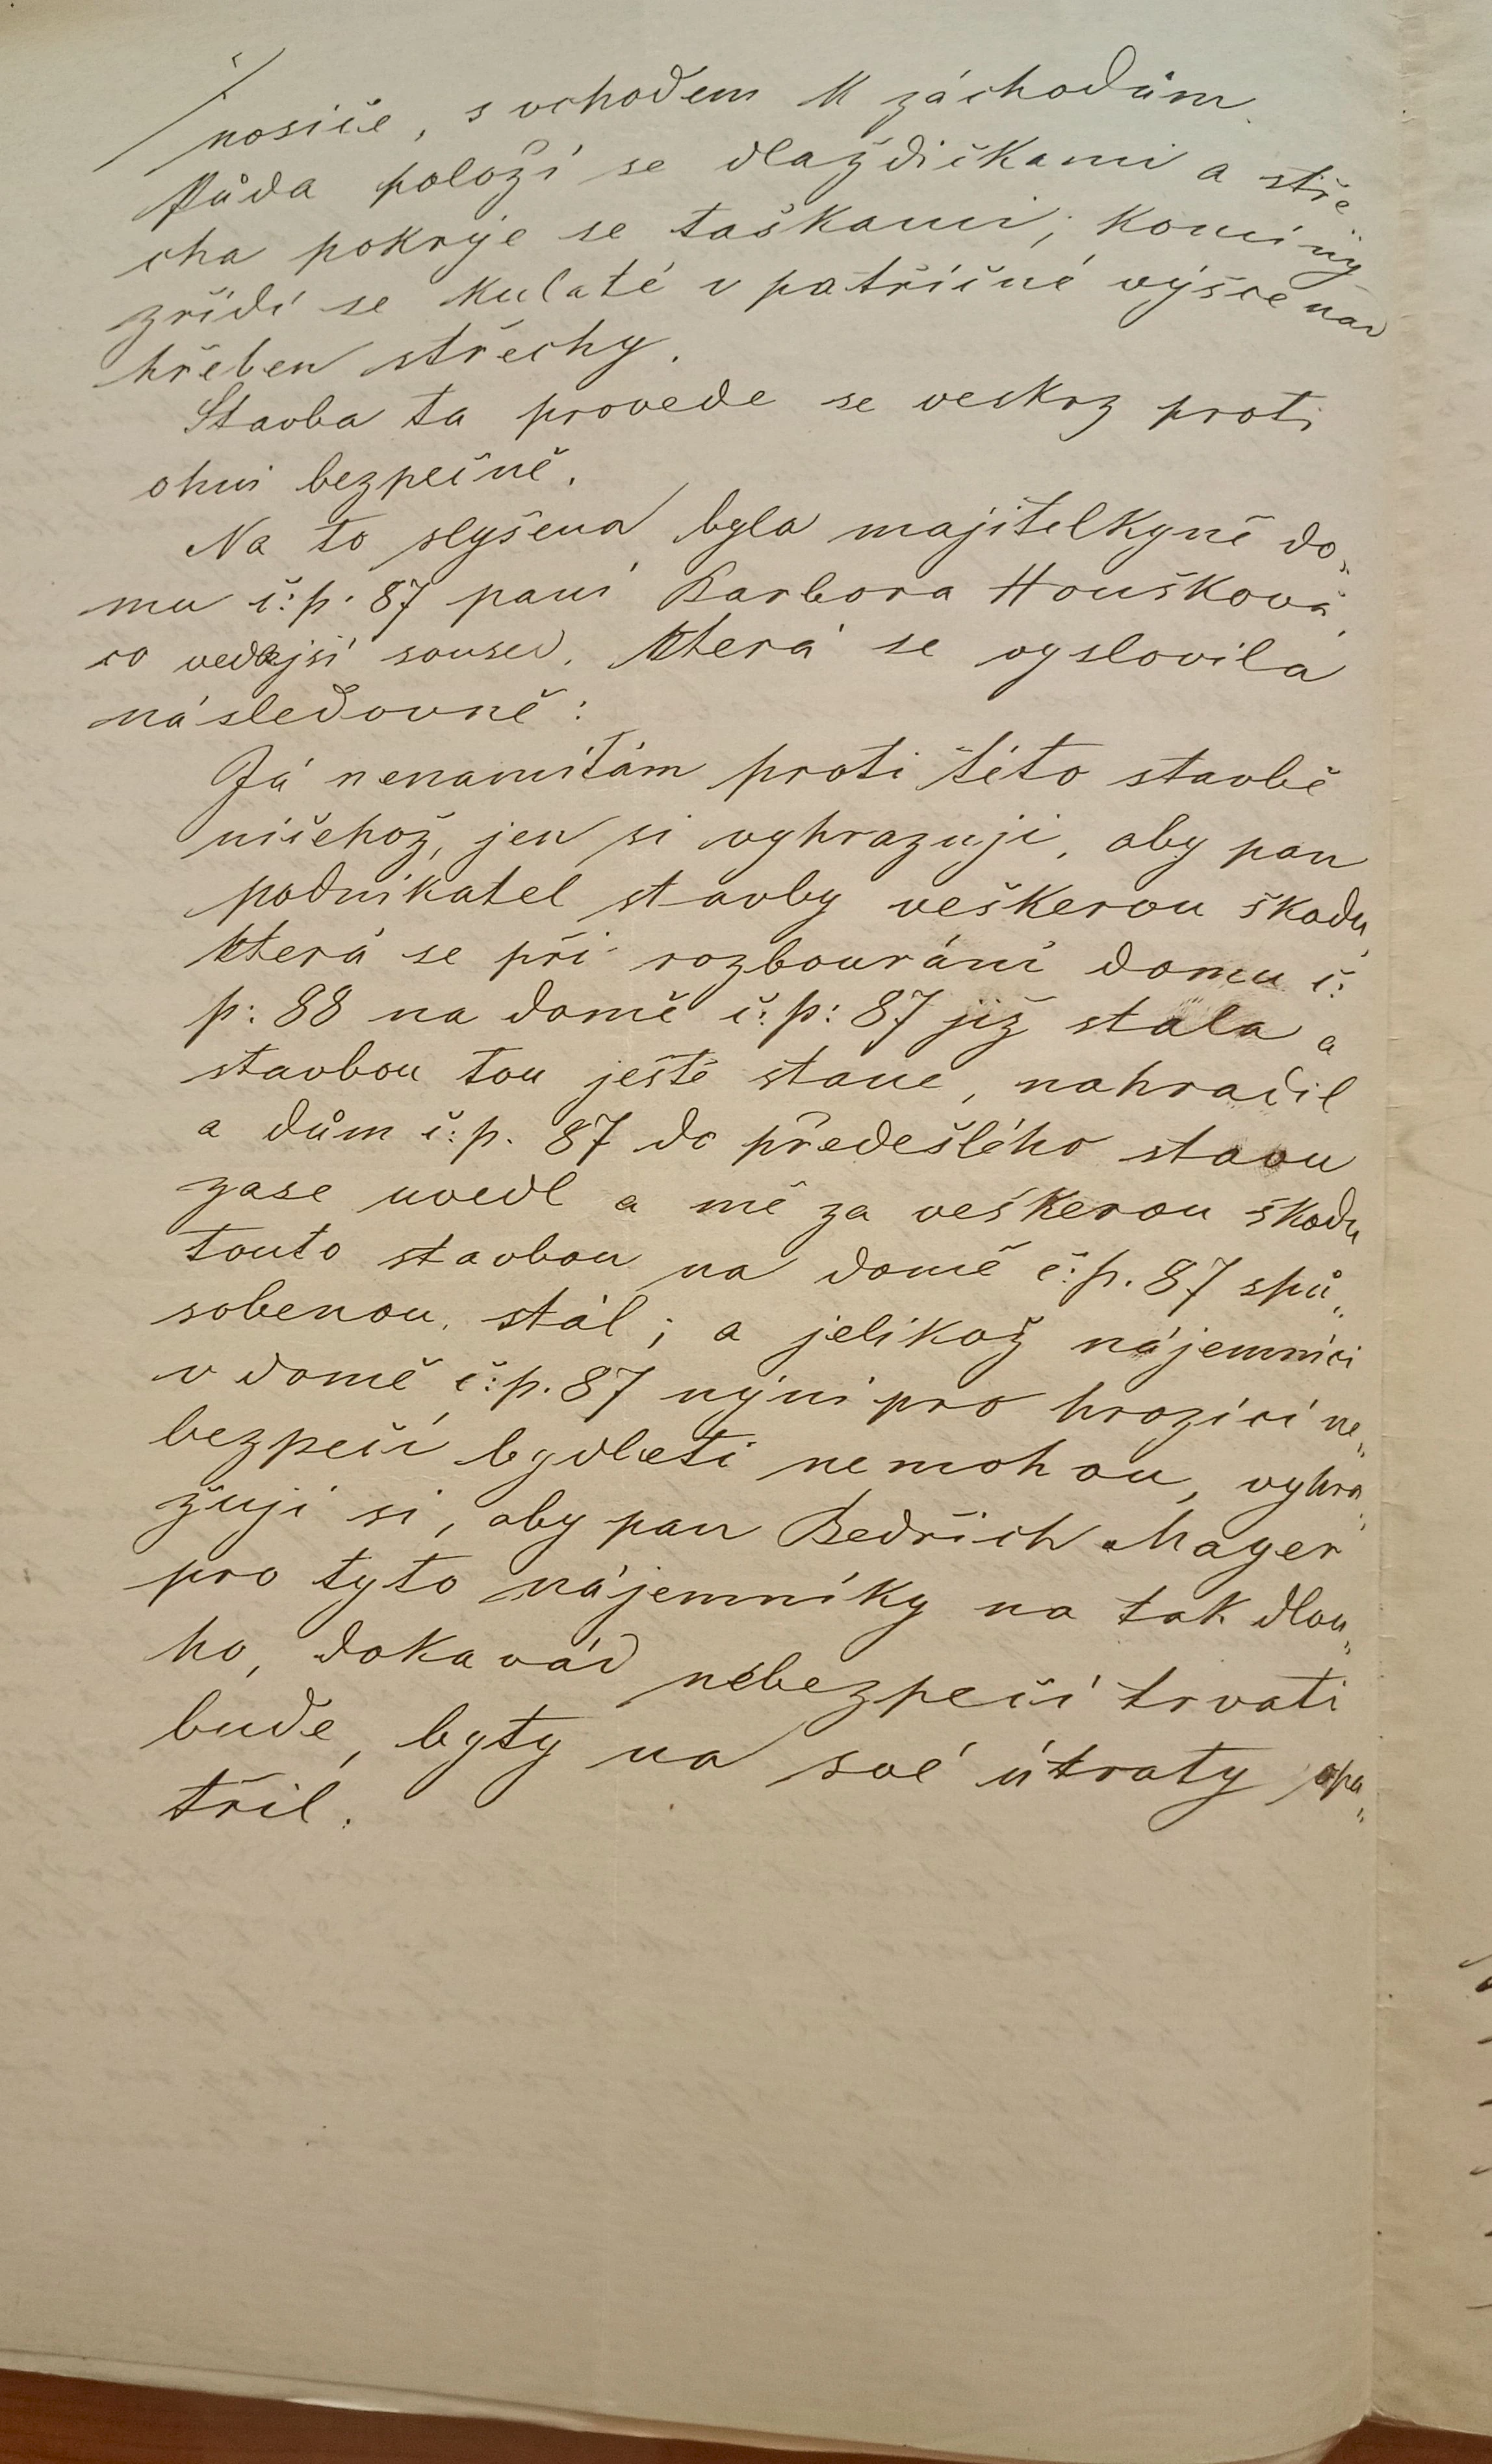 nosiče, s vchodem k záchodům.
Půda položí se dlaždičkami a stře
cha pokryje se taškami; komíny
zřídí se kulaté v patřičné výšce nad
hřeben střechy.
Stavba ta provede se veskrz proti
ohni bezpečně.
Na to slyšena byla majitelkyně do„
mu č:p. 87 paní Barbora Houšková,
co vedejší soused, která se vyslovila
následovně:
Já nenamítám proti této stavbě
ničehož, jen si vyhrazuji, aby pan
podnikatel stavby veškerou škodu,
která se při rozbourání domu č:
p: 88 na domě č:p: 87 již stala a
stavbou tou ještě stane, nahradil
a dům č:p. 87 do předešlého stavu
zase uvedl a mě za veškerou škodu
touto stavbou na domě č:p. 87 spů„
sobenou, stál; a jelikož nájemníci
v domě č:p. 87 nýni pro hrozící ne„
bezpečí bydleti nemohou, vyhra„
zuji si, aby pan Bedřich Mayer
pro tyto nájemníky na tak dlou„
ho, dokavád nebezpečí trvati
bude, byty na své útraty opa„
třil.